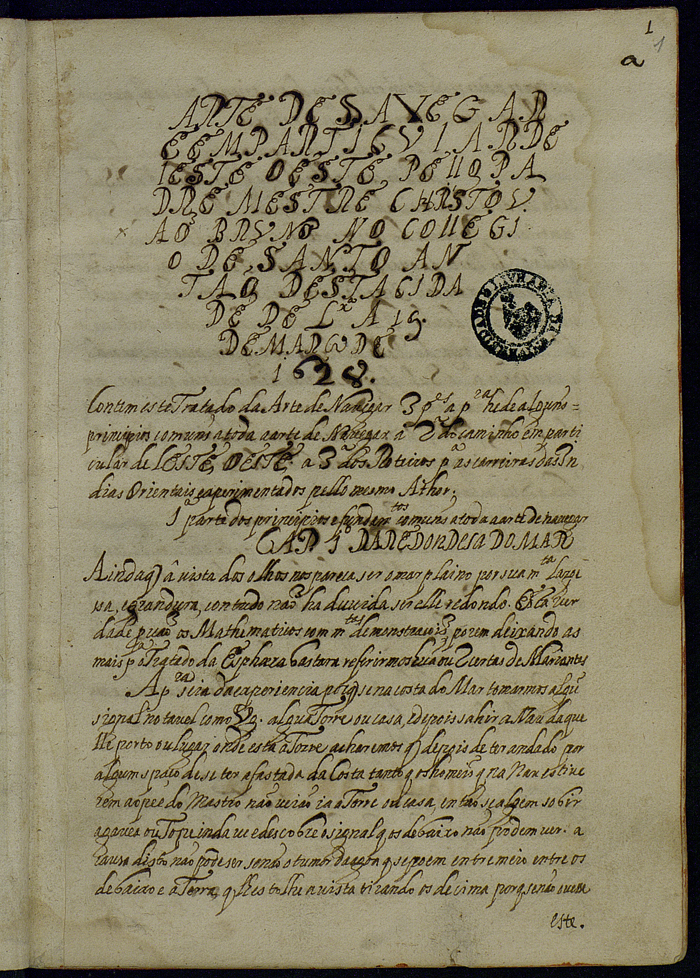 1
1
a
ARTE DE NAVEGAR
E EM PARTICVLAR DE
LESTE OESTE PELLO PA
DRE MESTRE CHRISTOV
AÕ BRVNO NO COLLEGI
O DE SANTO AN
TAÕ DESTA CIDA
DE DE Lxª A 19.
DE MARÇO DE
1628.
Contem este Tratado da Arte de Navegar 3 pes a pra he de alguns=
principios comuns a toda a arte de Navegar a 2ª do caminho em parti
cular de LESTE, OESTE, a 3ª dos Roteiros pª as carreiras das In
dias Orientais experimentados pello mesmo Athor;
1ª parte dos principios e fundamtos comuns a toda a arte de navegar
CAP. 1º DA REDONDESA DO MAR
Ainda q̃ â vista dos olhos nos pareça ser o mar plaino por sua mta largue
sa, e grandura, contudo naõ ha duvida ser elle redondo. Esta ver
dade os Mathematicos com mtas demonstraçois, porem deixando as
mais pª o Tratado da Esphæra bastara referirmos hua ou 2 certas de Mariantes
A pra seia da experiencia porq̃ se na costa do Mar tomarmos algũ
signal notavel como V.g. algua Torre ou casa, e depois sahir a Nau daque
lle porto ou lugar onde está a Torre acharemos q̃ depois de ter andado por
algum spaço de se ter afastada da Costa tanto q̃ os homeis q̃ na Nau estive
rem ao pee do Mastro naõ veiaõ ia a Torre ou casa, entaõ se algem sobir
a gavea ou Tope inda ve e descobre o signal q̃ os debaixo naõ podem ver: a
causa disto naõ pode ser senaõ o tumor da agoa q̃ se poem entremeio entre os
debaixo e a Terra, q̃ lhes tolhe a vista tirando os de cima porq̃ senaõ ouvera
este.